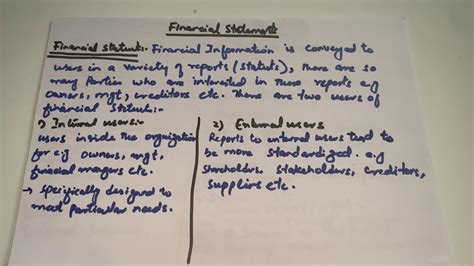 Financial Statements
Financial statemt:- Financial Information is conveyed to
users in a variety of reports (statmts), there are so
many Parties who are interested in these reports e.g
owners, mgt, creditors etc. There are two users of
financial statmts:-
1) Internal users:-
users inside the organization
for e.g owners, mgt,
financial mangers etc.
→ specifically designed to
meet particular needs.
2) External users
Reports to external users tend to
be more standardized. e.g
Shareholders, stakeholders, creditors,
suppliers etc.